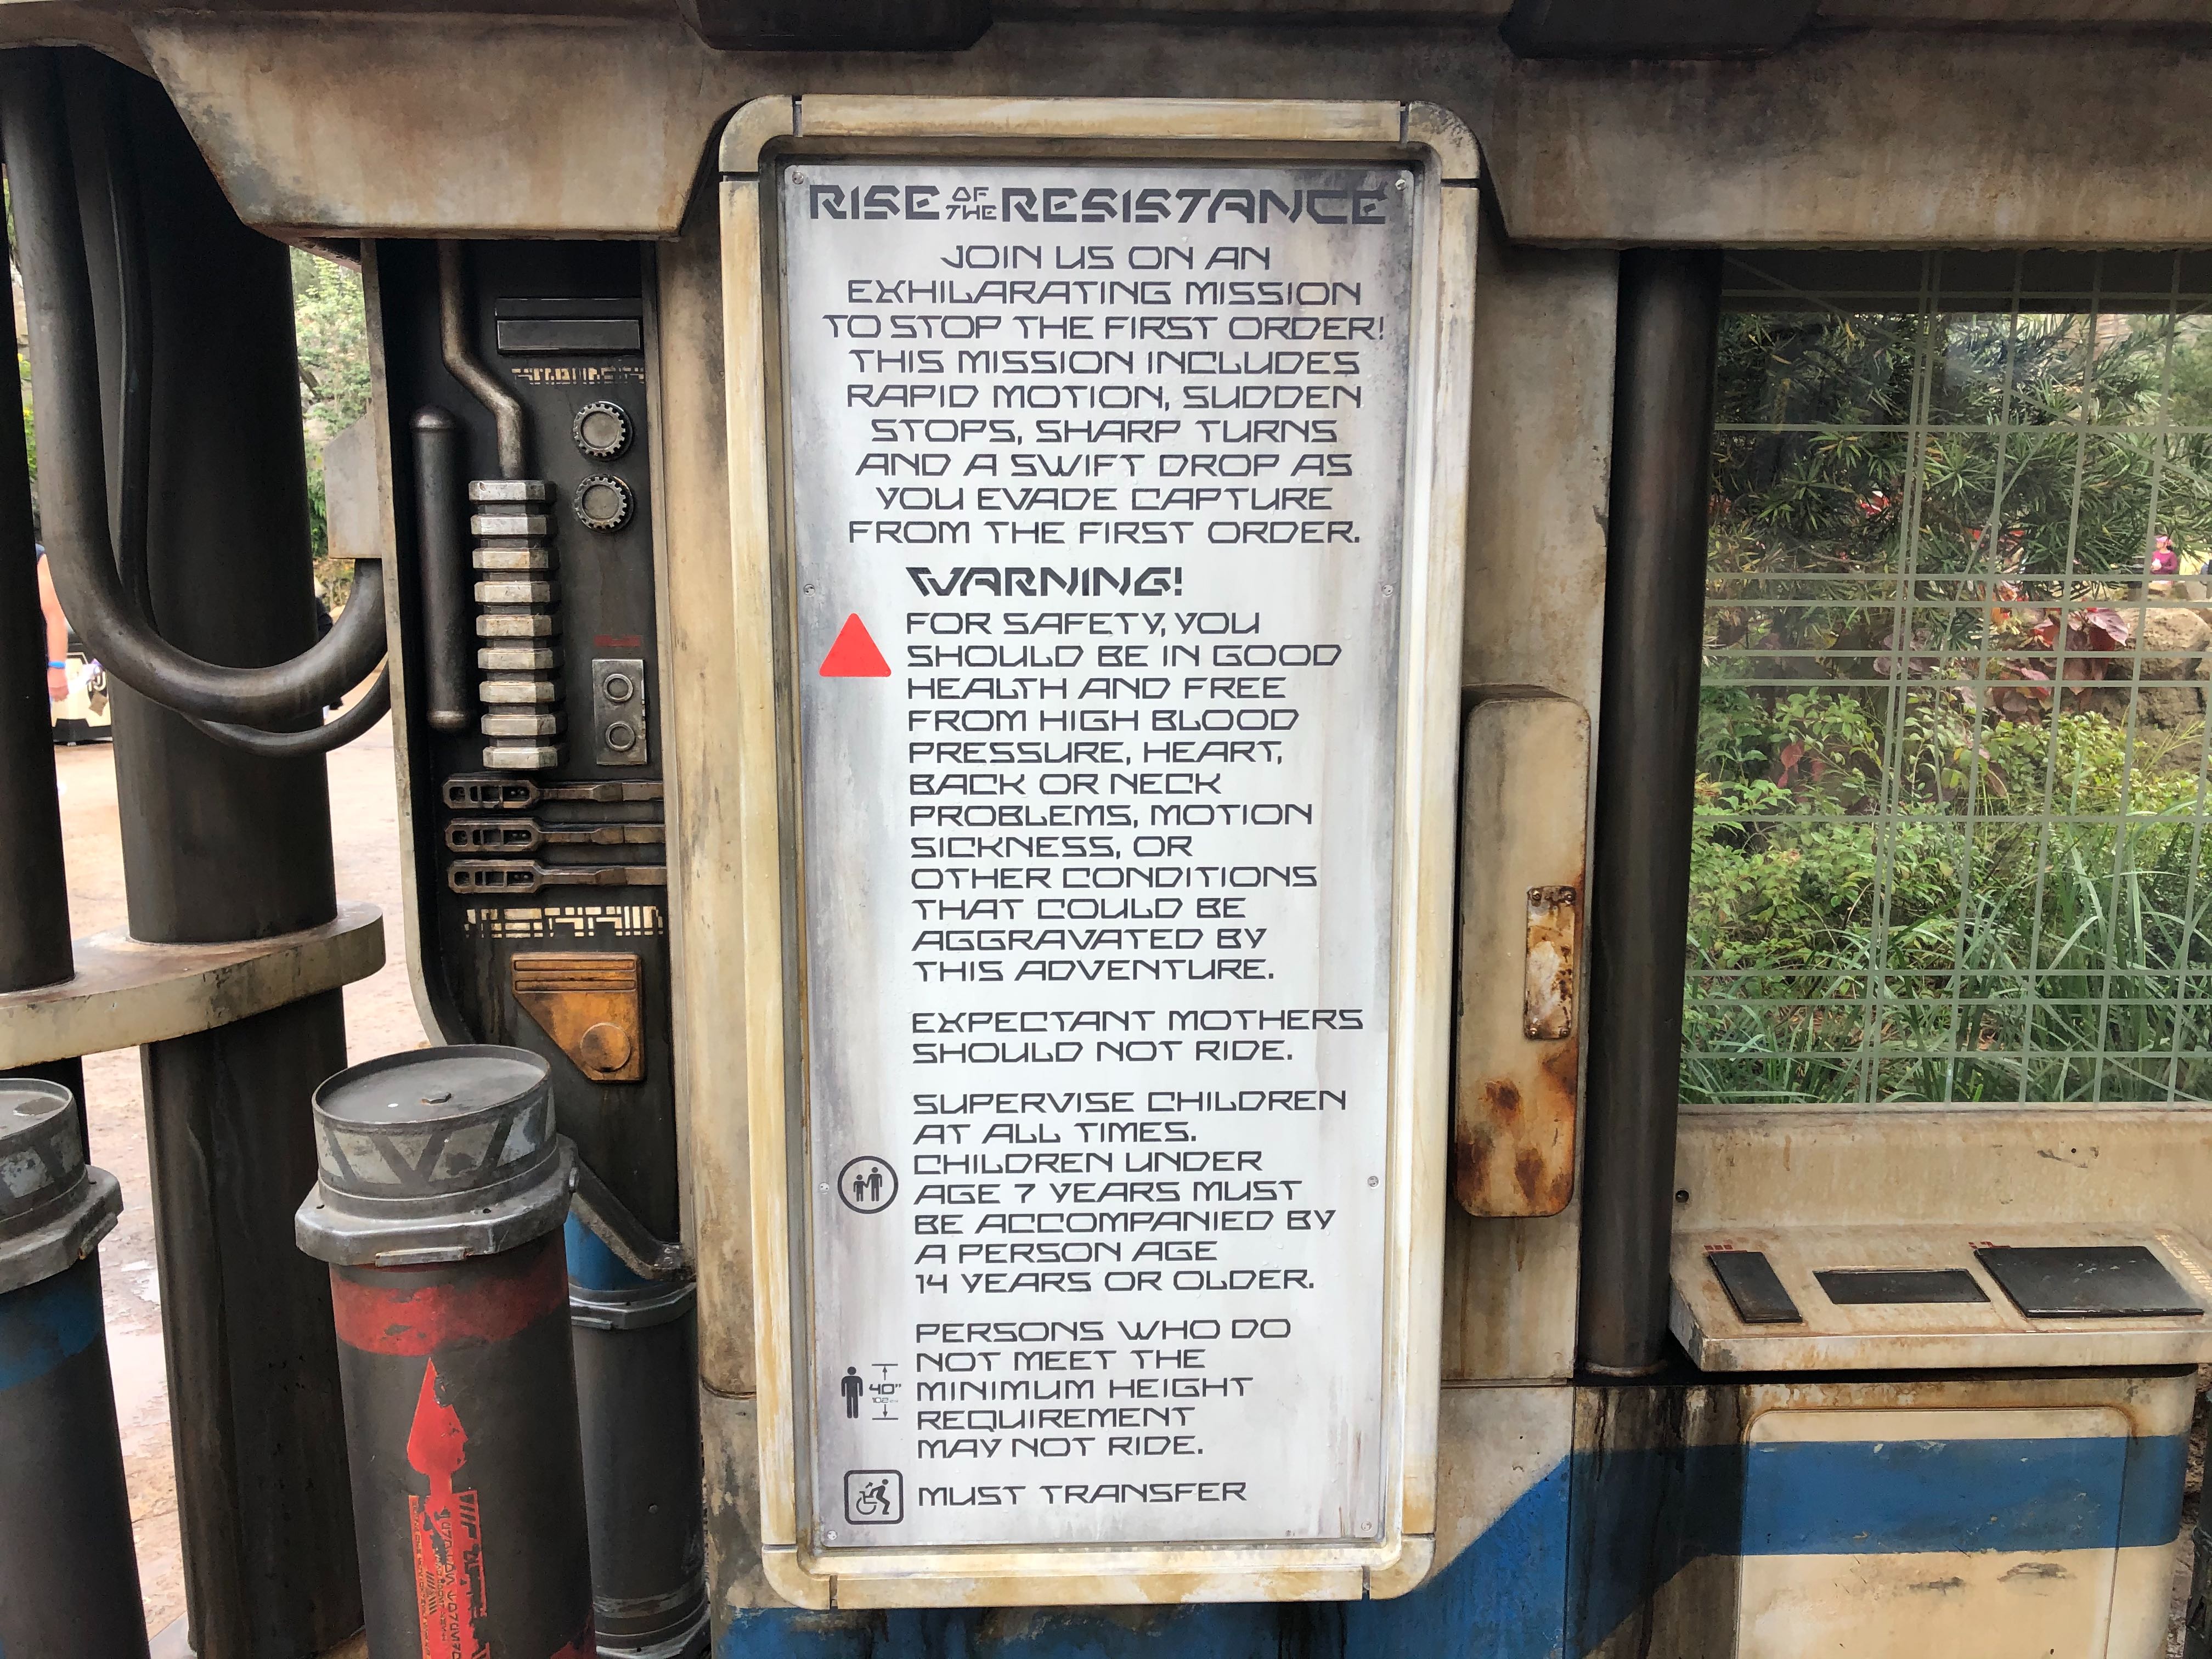 RISE OF THE RESISTANCE
JOIN US ON AN
EXHILARATING MISSION
TO STOP THE FIRST ORDER!
THIS MISSION INCLUDES
RAPID MOTION, SUDDEN
STOPS, SHARP TURNS
AND A SWIFT DROP AS
YOU EVADE CAPTURE
FROM THE FIRST ORDER.
WARNING!
FOR SAFETY, YOU
SHOULD BE IN GOOD
HEALTH AND FREE
FROM HIGH BLOOD
PRESSURE, HEART,
BACK OR NECK
PROBLEMS, MOTION
SICKNESS, OR
OTHER CONDITIONS
THAT COULD BE
AGGRAVATED BY
THIS ADVENTURE.
EXPECTANT MOTHERS
SHOULD NOT RIDE.
SUPERVISE CHILDREN
AT ALL TIMES.
CHILDREN UNDER
AGE 7 YEARS MUST
BE ACCOMPANIED BY
A PERSON AGE
14 YEARS OR OLDER.
PERSONS WHO DO
NOT MEET THE
MINIMUM HEIGHT
REQUIREMENT
MAY NOT RIDE.
40"
102cm
MUST TRANSFER